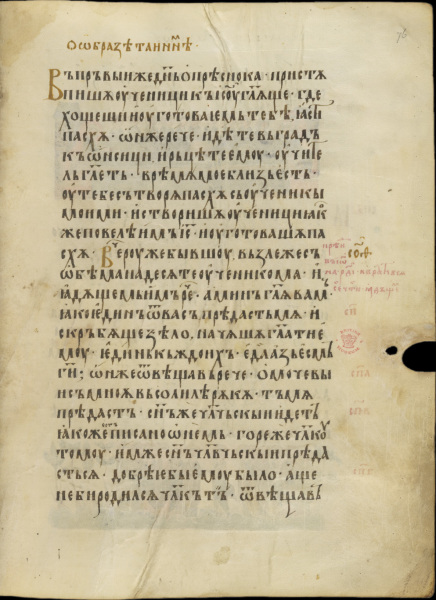 о ѡбразѣ таиннѣмъ
Въ пръвыи же дн҃ь опрѣснока · пристѫ
пишѧ ѹченици къ іс҃оу гл҃ѧще · где
хощеши ѹготоваемь тебѣ ꙗсти
пасхѫ · ѡн же рече · идѣте въ градъ
къ ѡнсици · и рьцѣте емоу · ѹчитель
гл҃еть · врѣмѧ мое близъ есть ·
ѹ тебе сътворѧ пасхѫ съ ѹченикы
моими · и створишѧ ѹченици ꙗк
же повелѣ имъ іс҃ · и ѹготовашѧ па
схѫ · Вечероу же бывшоу възлеже съ
ѡбѣма на десѧте ѹченикома · и
ꙗдѫщемь имъ рече · аминъ гл҃ѧ вамъ
ꙗко единъ ѿ васъ прѣдасть мѧ · и
скръбѧще ѕело · начѧшѧ гл҃ати е
моу · единь къждо ихъ · еда азъ есмь
ги҃ · ѡн же ѿвѣщавь рече · омочевы
и съ мноѫ въ солило рѫкѫ · тъ мѧ
прѣдастъ · сн҃ъ же чл҃чьскыи идеть
ꙗкоже писано ѡ немь · горе же чл҃коу
томоу · имже сн҃ъ чл҃чьскыи прѣда
стьсѧ · добрѣе бы емоу было · аще
не би родилсѧ чл҃къ тъ · ѿвѣщавь